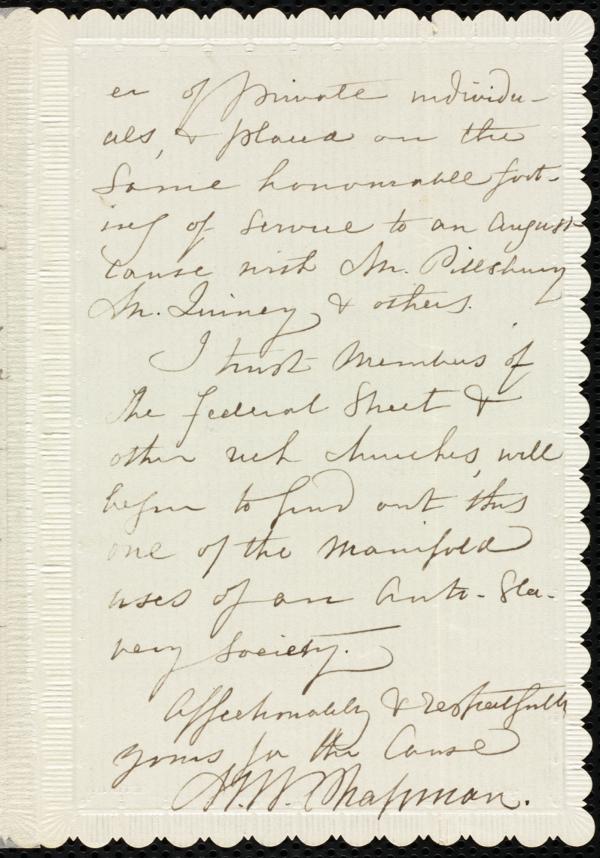 er of private individu-
als, & placed on the
same honourable foot-
ing of service to an august
cause with Mr. Pillsbury
Mr. Quincy, & others.
I trust members of
the Federal Street &
other rich churches, will
begin to find out this
one of the manifold
uses of an Anti-Sla-
very Society.
Affectionately & respectfully
yours for the Cause
M. W. Chapman.